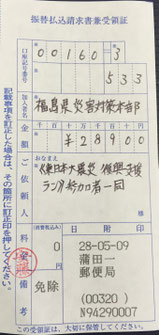 振替払込請求書兼受領証
口座記号番号
00160-3
533
加入者名
福島県災害対策本部
金額
千百十万千百十円
¥28900
ご依頼人
おなまえ
《東日本大震災 復興支援
ラン》参加者一同
料金
(消費税込み)
0
円
備考
免除
日附印
28-05-09
蒲田一
郵便局
(00320)
N94290007
記載事項を訂正した場合は、その箇所に訂正印を押してください。
この受領証は、大切に保管してください。